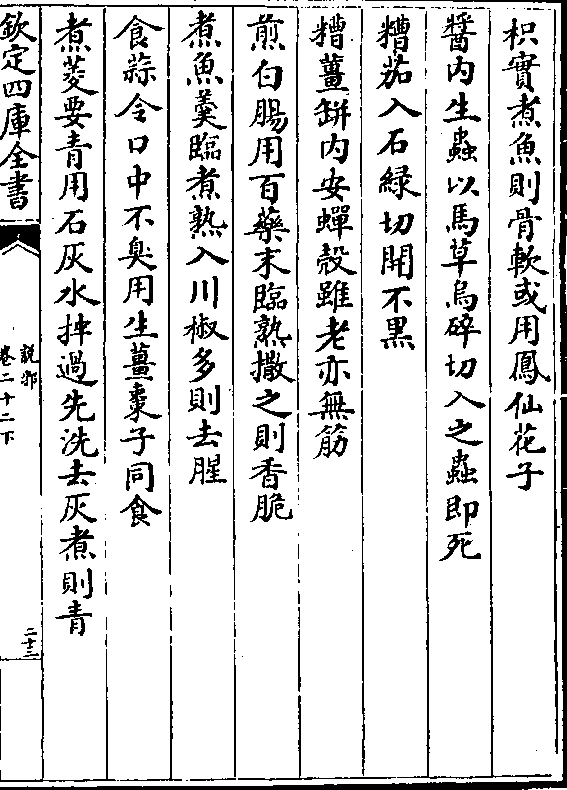 枳實煮魚則骨軟或用鳳仙花子
醬内生蟲以馬草烏碎切入之蟲即死
糟茄入石緑切開不黒
糟薑缾内安蟬殻雖老亦無筋
煎白腸用百藥末臨熟撒之則香脆
煮魚羮臨煮熟入川椒多則去腥
食蒜令口中不臭用生薑棗子同食
煮菱要青用石灰水拌過先洗去灰煮則青
欽定四庫全書
說郛
卷二十二下
二十三